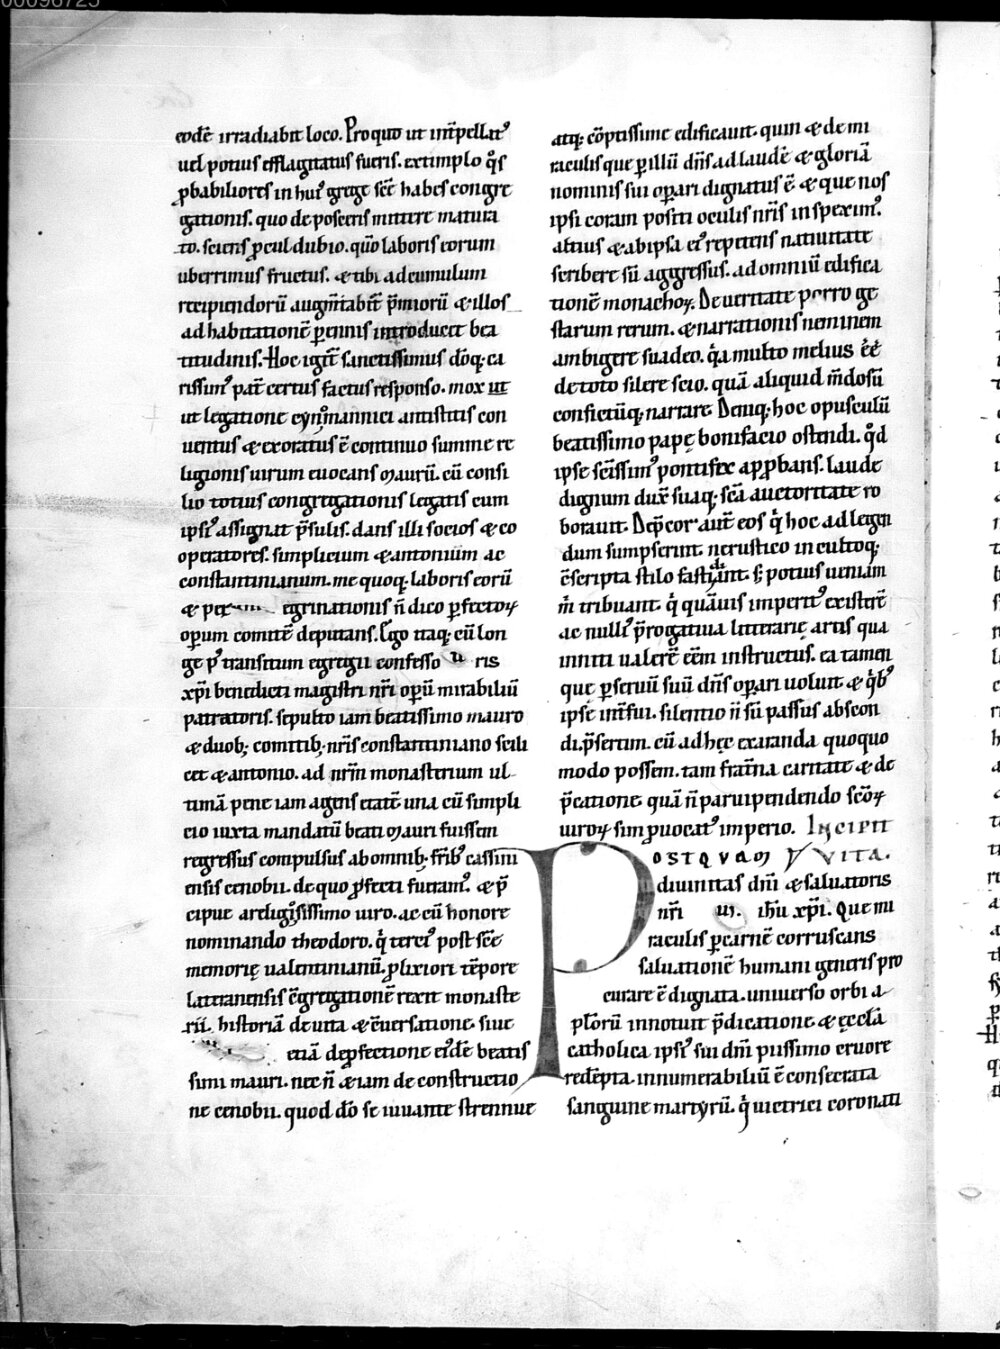 00096725
eodē irradiabit loco. Pro quo ut int̄pellat᷒
uel potius efflagitatus fueris. extimplo q̊s
ꝓbabiliores in hui᷒ grege sc̄e habes congre
gationis. quo deposceris mittere matura
to. sciens ꝓcul dubio. qūo laboris eorum
uberrimus fructus. & tibi ad cumulum
recipiendorū augm̄tabit̄ p̄miorū & illos
ad habitationē ꝑennis introducet bea
titudinis. Hoc igit̄ sanctissimus dō q; ca
rissim᷒ pat̄ certus factus responso. mox ut
ut legatione cyn̄mannici antistitis con
uentus & exoratus ē continuo summe re
ligionis uirum euocans Maurū. cū consi
lio totius congregationis legatis eum
ipsi᷒ assignat p̄sulis. dans illi socios & co
operatores. simplicium & antonium ac
constantinianum. me quoq; laboris eorū
& per egrinationis n̄ dico ꝑfectoꝝ
oꝑum comitē deputans. Ego itaq; cū lon
ge p᷒ transitum egregii confesso ris
xp̄i benedicti magistri nr̄i oꝑū mirabiliū
patratoris. sepulto iam beatissimo mauro
& duob; comitib; nr̄is constantiniano scili
cet & antonio. ad nr̄m monasterium ul
timā pene iam agens etatē una cū simpli
cio iuxta mandatū beati Mauri fuissem
regressus compulsus ab omnib; fr̄ib᷒ cassini
ensis cenobii. de quo ꝓfecti fueram᷒. & p̄
cipue a religiosissimo uiro. ac cū honore
nominando theodoro. q̇ terci᷒ post sc̄e
memorię ualentinianū. ꝓlixiori tēpore
lateranensis c̄gregationē rexit monaste
rii. historiā de uita & c̄uersatione. siue
etiā de ꝓfectione ei᷒dē beatis
simi mauri. nec n̄ & iam de constructio
ne cenobii. quod dō se iuuante strennue
atq; cōptissime edificauit. quin & de mi
raculis que ꝑ illū dn̄s ad laudē & gloriā
nominis sui oꝑari dignatus ē & que nos
ipsi coram positi oculis nr̄is inspexim᷒.
altius & ab ipsa ei᷒ repetens natiuitate
scribere sū aggressus. ad omniū edifica
tionē monachoꝝ. De ueritate porro ge
starum rerum. & narrationis neminem
ambigere suadeo. q̇a multo melius ēē
de toto silere scio. quā aliquid m̄dosū
confictūq; narrare. Deniq; hoc opusculū
beatissimo papę bonifacio ostendi. q̊d
ipse sc̄issim᷒ pontifex apꝓbans. laude
dignum dux̄ suaq; sc̄a auctoritate ro
borauit. Dep̄cor aut̄ eos q̇ hoc ad legen
dum sumpserint. ne rustico incultoq;
c̄scripta stilo fastidiant. s; potius ueniam
m̄ tribuant. q̇ quāuis imperit᷒ existerē
ac nulli᷒ p̄rogatiua litterarię artis qua
inniti ualerē eēm instructus. ea tamen
que ꝑ seruū suū dn̄s oꝑari uoluit & q̇b᷒
ipse int̄fui. silentio n̄ sū passus abscon
di. p̄sertim. cū ad hęc exaranda quoquo
modo possem. tam frat̄na caritate & de
p̄catione quā n̄ paruipendendo sc̄oꝝ
uiroꝝ sim ꝓuocat᷒ imperio. INCIPIT
POSTQVAM VITA.
diuinitas dn̄i & saluatoris
nr̄i ih̄u xp̄i. Que mi
raculis ꝑ carnē corruscans
saluationē humani generis pro
curare ē dignata. uniuerso orbi a
pl̄orū innotuit p̄dicatione & ęcclā
catholica ipsi᷒ sui dn̄i piissimo cruore
redēpta. innumerabiliū ē consecrata
sanguine martyrū. q̇ uictrici coronati